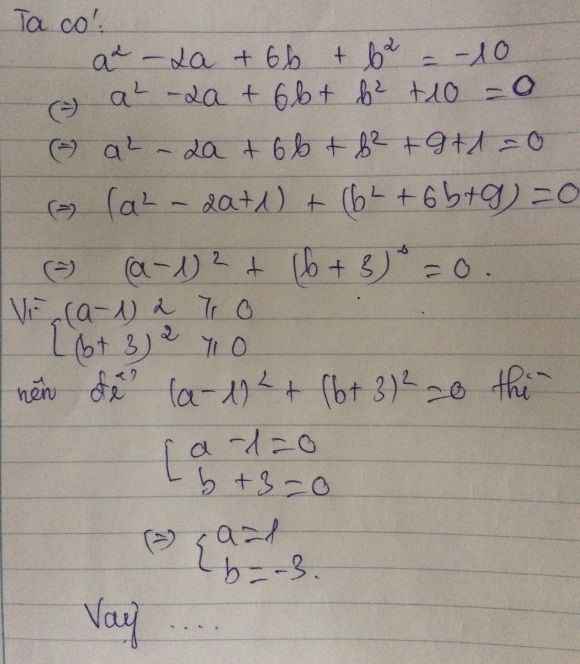 Ta có:
a² - 2a + 6b + b² = -10
(=) a² - 2a + 6b + b² + 10 = 0
(=) a² - 2a + 6b + b² + 9 + 1 = 0
(=) (a² - 2a + 1) + (b² + 6b + 9) = 0
(=) (a - 1)² + (b + 3)² = 0.
Vì { (a - 1)² ≥ 0
(b + 3)² ≥ 0
nên để (a - 1)² + (b + 3)² = 0 thì
[ a - 1 = 0
b + 3 = 0
(=) { a = 1
b = -3.
Vay ....